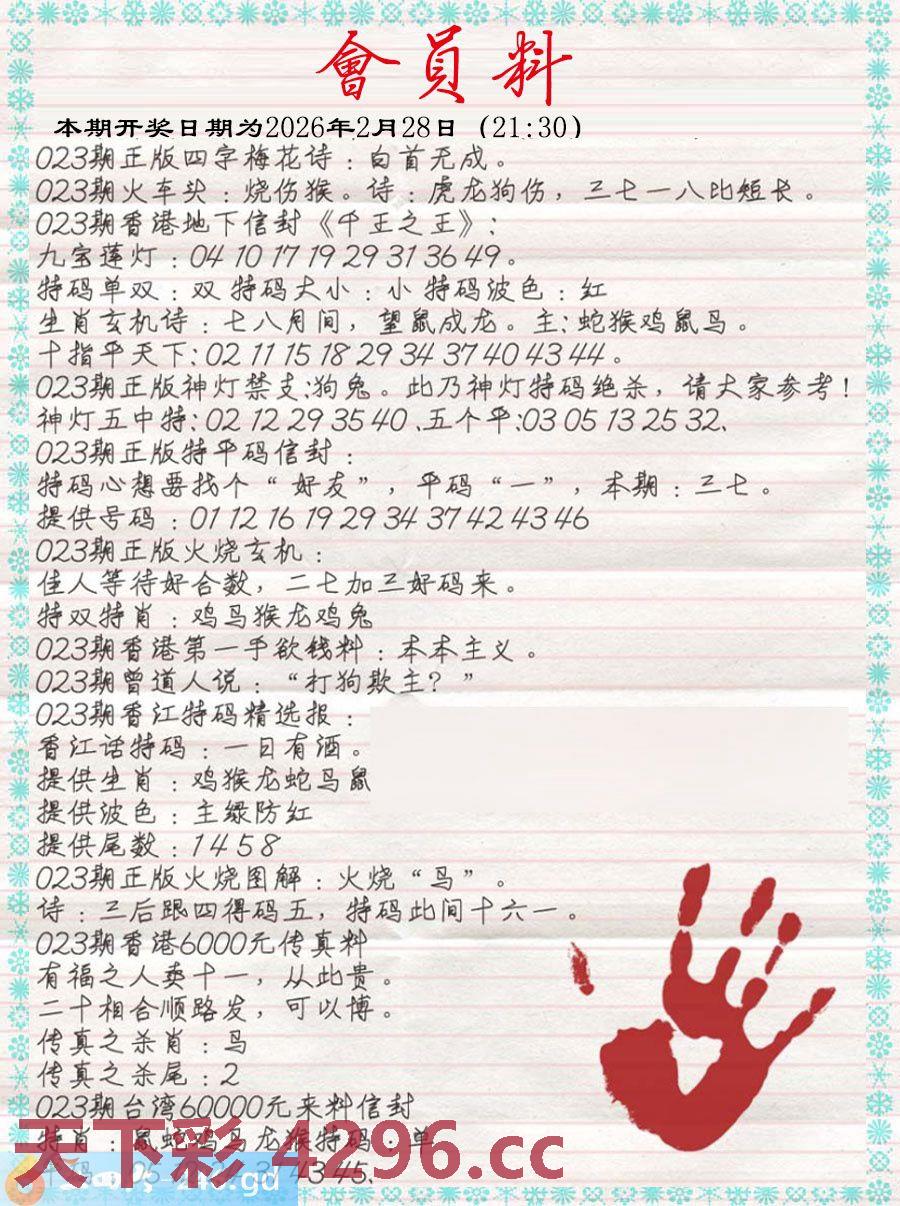 會員料
本期开奖日期为2026年2月28日（21:30）
023期正版四字梅花诗：白首无成。
023期火车头：烧伤猴。诗：虎龙狗伤，三七一八比短长。
023期香港地下信封《千王之王》:
九宝莲灯：04 10 17 19 29 31 36 49。
特码单双：双 特码大小：小 特码波色：红
生肖玄机诗：七八月间，望鼠成龙。主:蛇猴鸡鼠马。
十指平天下:02 11 15 18 29 34 37 40 43 44。
023期正版神灯禁支:狗兔。此乃神灯特码绝杀，请大家参考！
神灯五中特:02 12 29 35 40 、五个平:03 05 13 25 32、
023期正版特平码信封：
特码心想要找个“好友”，平码“一”，本期：三七。
提供号码：01 12 16 19 29 34 37 42 43 46
023期正版火烧玄机：
佳人等待好合数，二七加三好码来。
特双特肖：鸡马猴龙鸡兔
023期香港第一手欲钱料：本本主义。
023期曾道人说：“打狗欺主？”
023期香江特码精选报：
香江话特码：一日有酒。
提供生肖：鸡猴龙蛇马鼠
提供波色：主绿防红
提供尾数：1 4 5 8
023期正版火烧图解：火烧“马”。
诗：三后跟四得码五，特码此间十六一。
023期香港6000元传真料
有福之人卖十一，从此贵。
二十相合顺路发，可以博。
传真之杀肖：马
传真之杀尾：2
023期台湾60000元来料信封
特肖：鼠蛇鸡马龙猴特码：单
43 45、
天下彩4296.cc